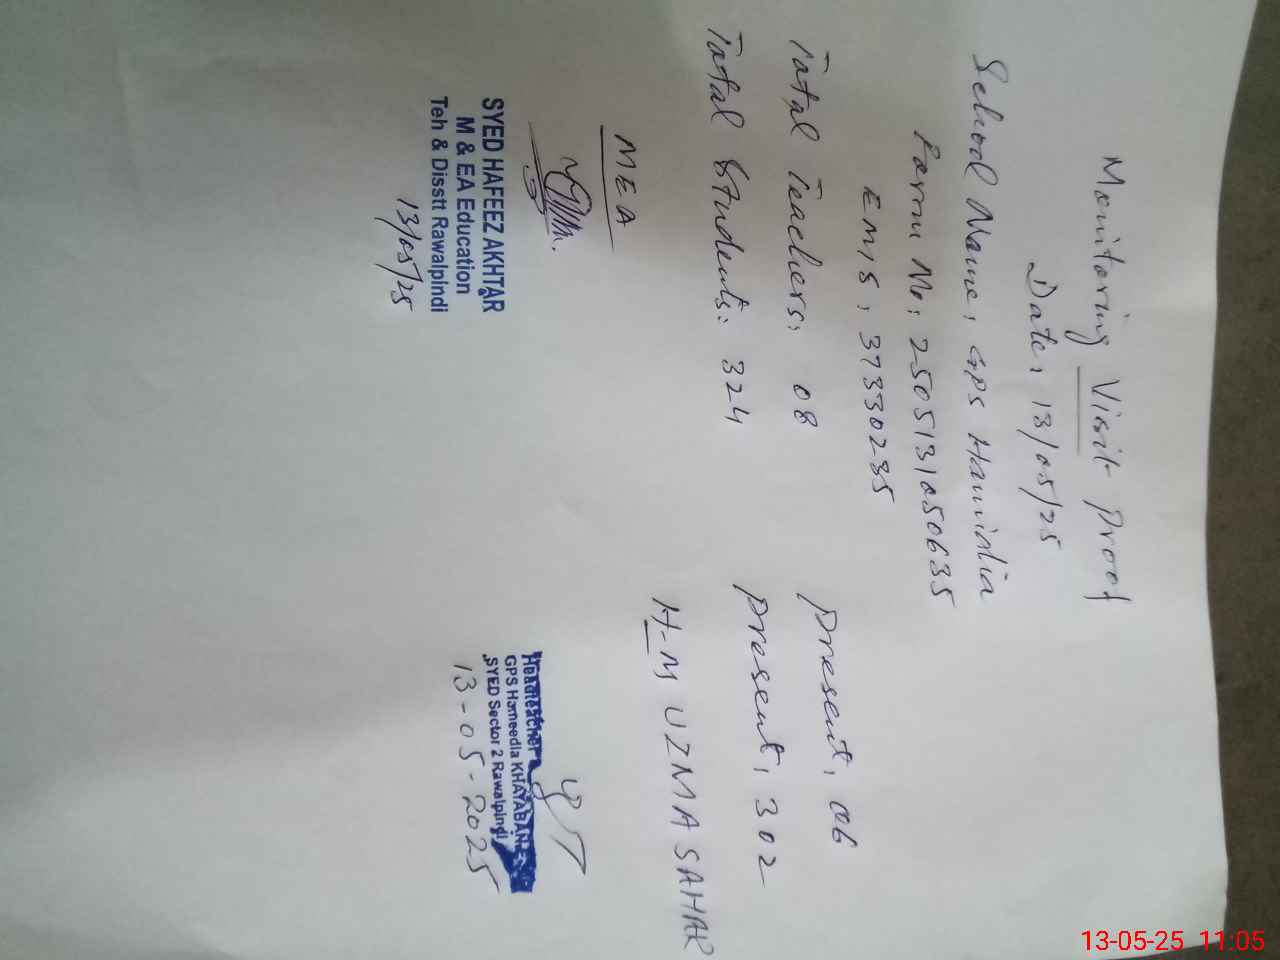 Monitoring Visit Proof
Date: 13/05/25
School Name: GPS Hamidia
Form No: 2505131050635
EMIS: 37330235
Total Teachers: 08 Present: 06
Total Students: 324 Present: 302
MEA H-M UZMA SAHAR
SYED HAFEEZ AKHTAR
M & EA Education
Teh & Disstt Rawalpindi
13/05/25
Headteacher
GPS Hameedia KHAYABAN
SYED Sector 2 Rawalpindi
13-05-2025
13-05-25 11:05